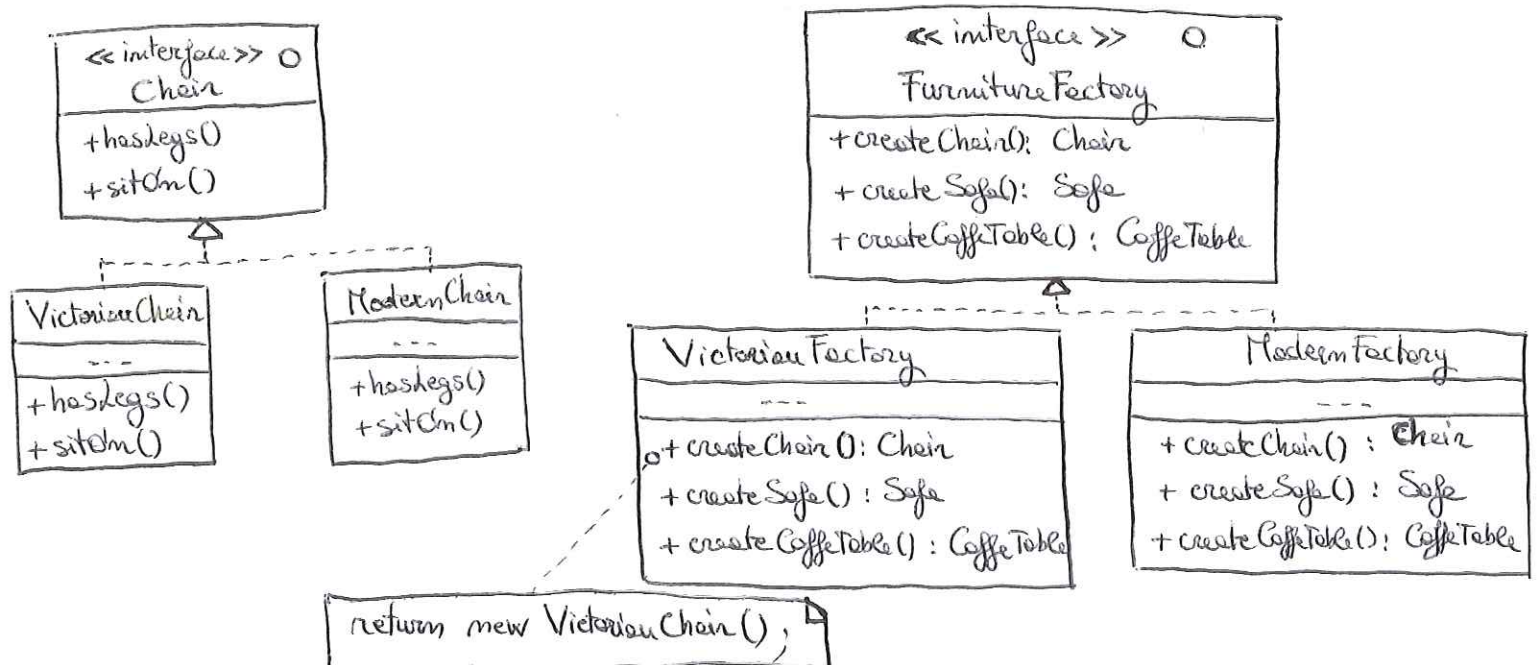 <<interface>>
Chair
+hasLegs()
+sitOn()
VictorianChair
---
+hasLegs()
+sitOn()
ModernChair
---
+hasLegs()
+sitOn()
<<interface>>
FurnitureFactory
+createChair(): Chair
+createSofa(): Sofa
+createCoffeTable(): CoffeTable
VictorianFactory
---
+createChair(): Chair
+createSofa(): Sofa
+createCoffeTable(): CoffeTable
ModernFactory
---
+createChair(): Chair
+createSofa(): Sofa
+createCoffeTable(): CoffeTable
return new VictorianChair();